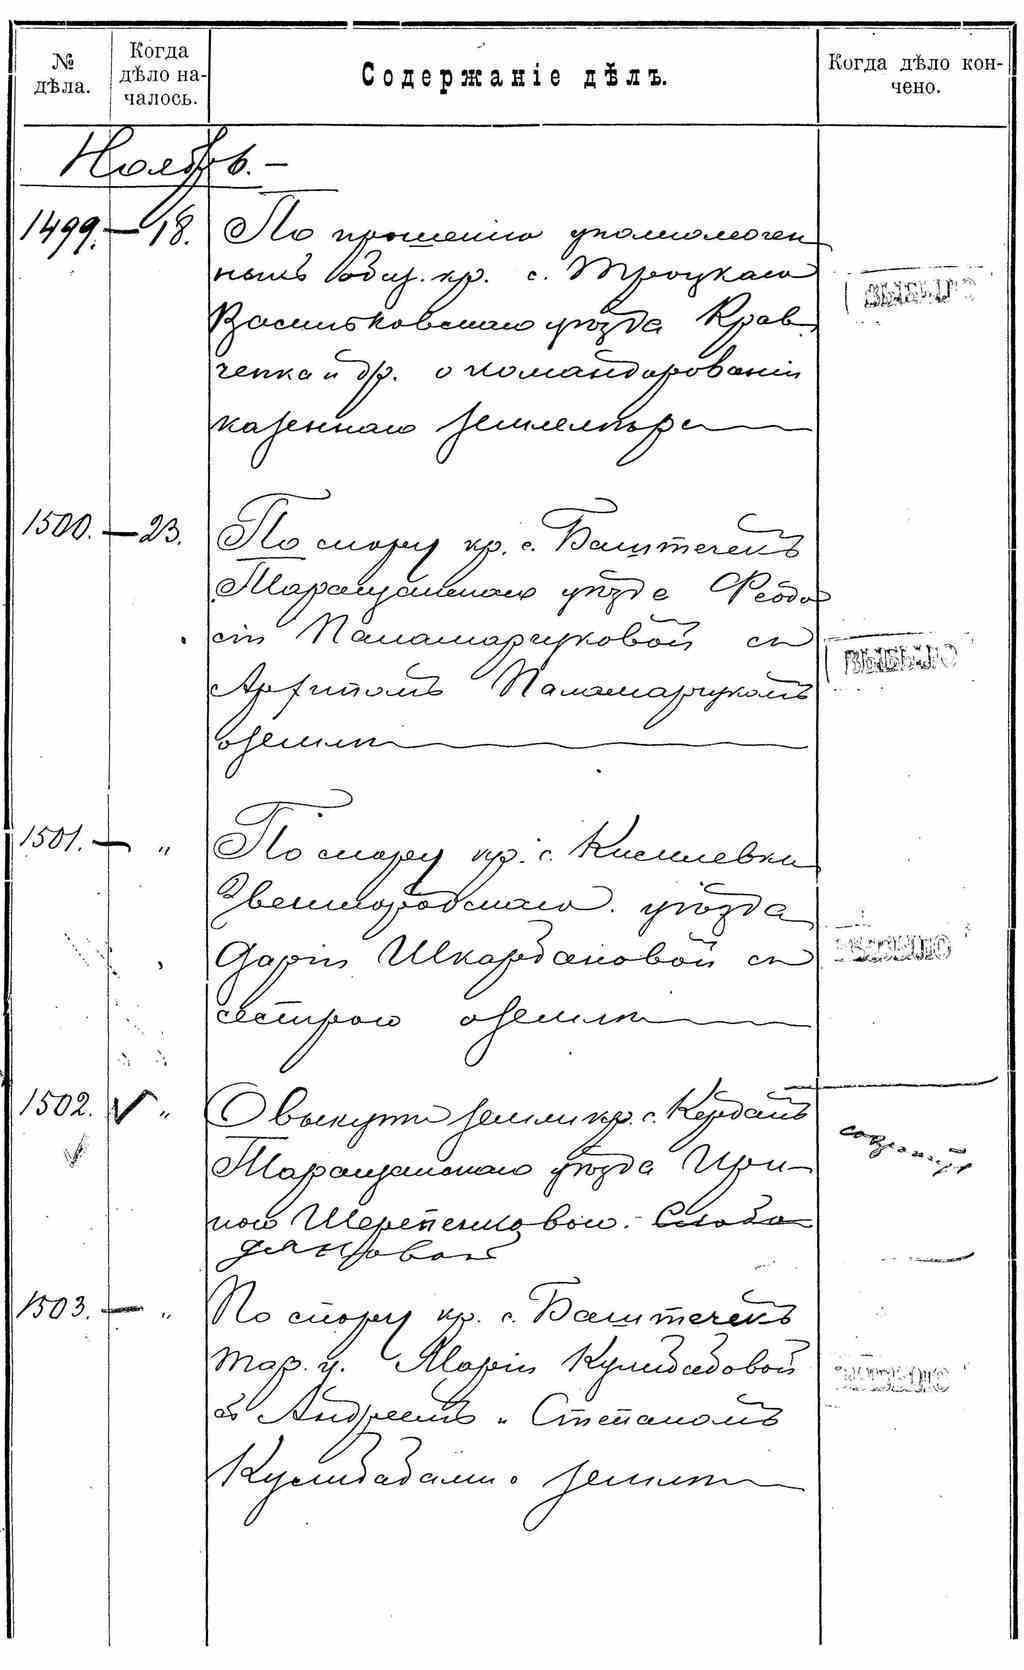 № дѣла.
Когда дѣло на-
чалось.
Содержаніе дѣлъ.
Когда дѣло кон-
чено.
Ноябрь. —
1499. — 18. По прошенію уполномочен
ныхъ общ. кр. с. Троцкаго
Васильковскаго уѣзда Крав
ченка и др. о командированіи
казеннаго землемѣра
ВЫБЫЛО
1500. — 23. По спору кр. с. Баштечекъ
Таращанскаго уѣзда Феодо
сіи Паламарчуковой съ
Паламарчукомъ
о землѣ
ВЫБЫЛО
1501. — " По спору кр. с. Кисилевки
Звенигородскаго уѣзда
Даріи Шкарбановой съ
сестрою о землѣ
ВЫБЫЛО
1502. V " О выкупѣ земли кр. с. Кердань
Таращанскаго уѣзда Ири
ною
1503. — " По спору кр. с. Баштечекъ
Тар. у. Маріи Кулибабовой
съ Андреемъ и Степаномъ
Кулибабами о землѣ
ВЫБЫЛО